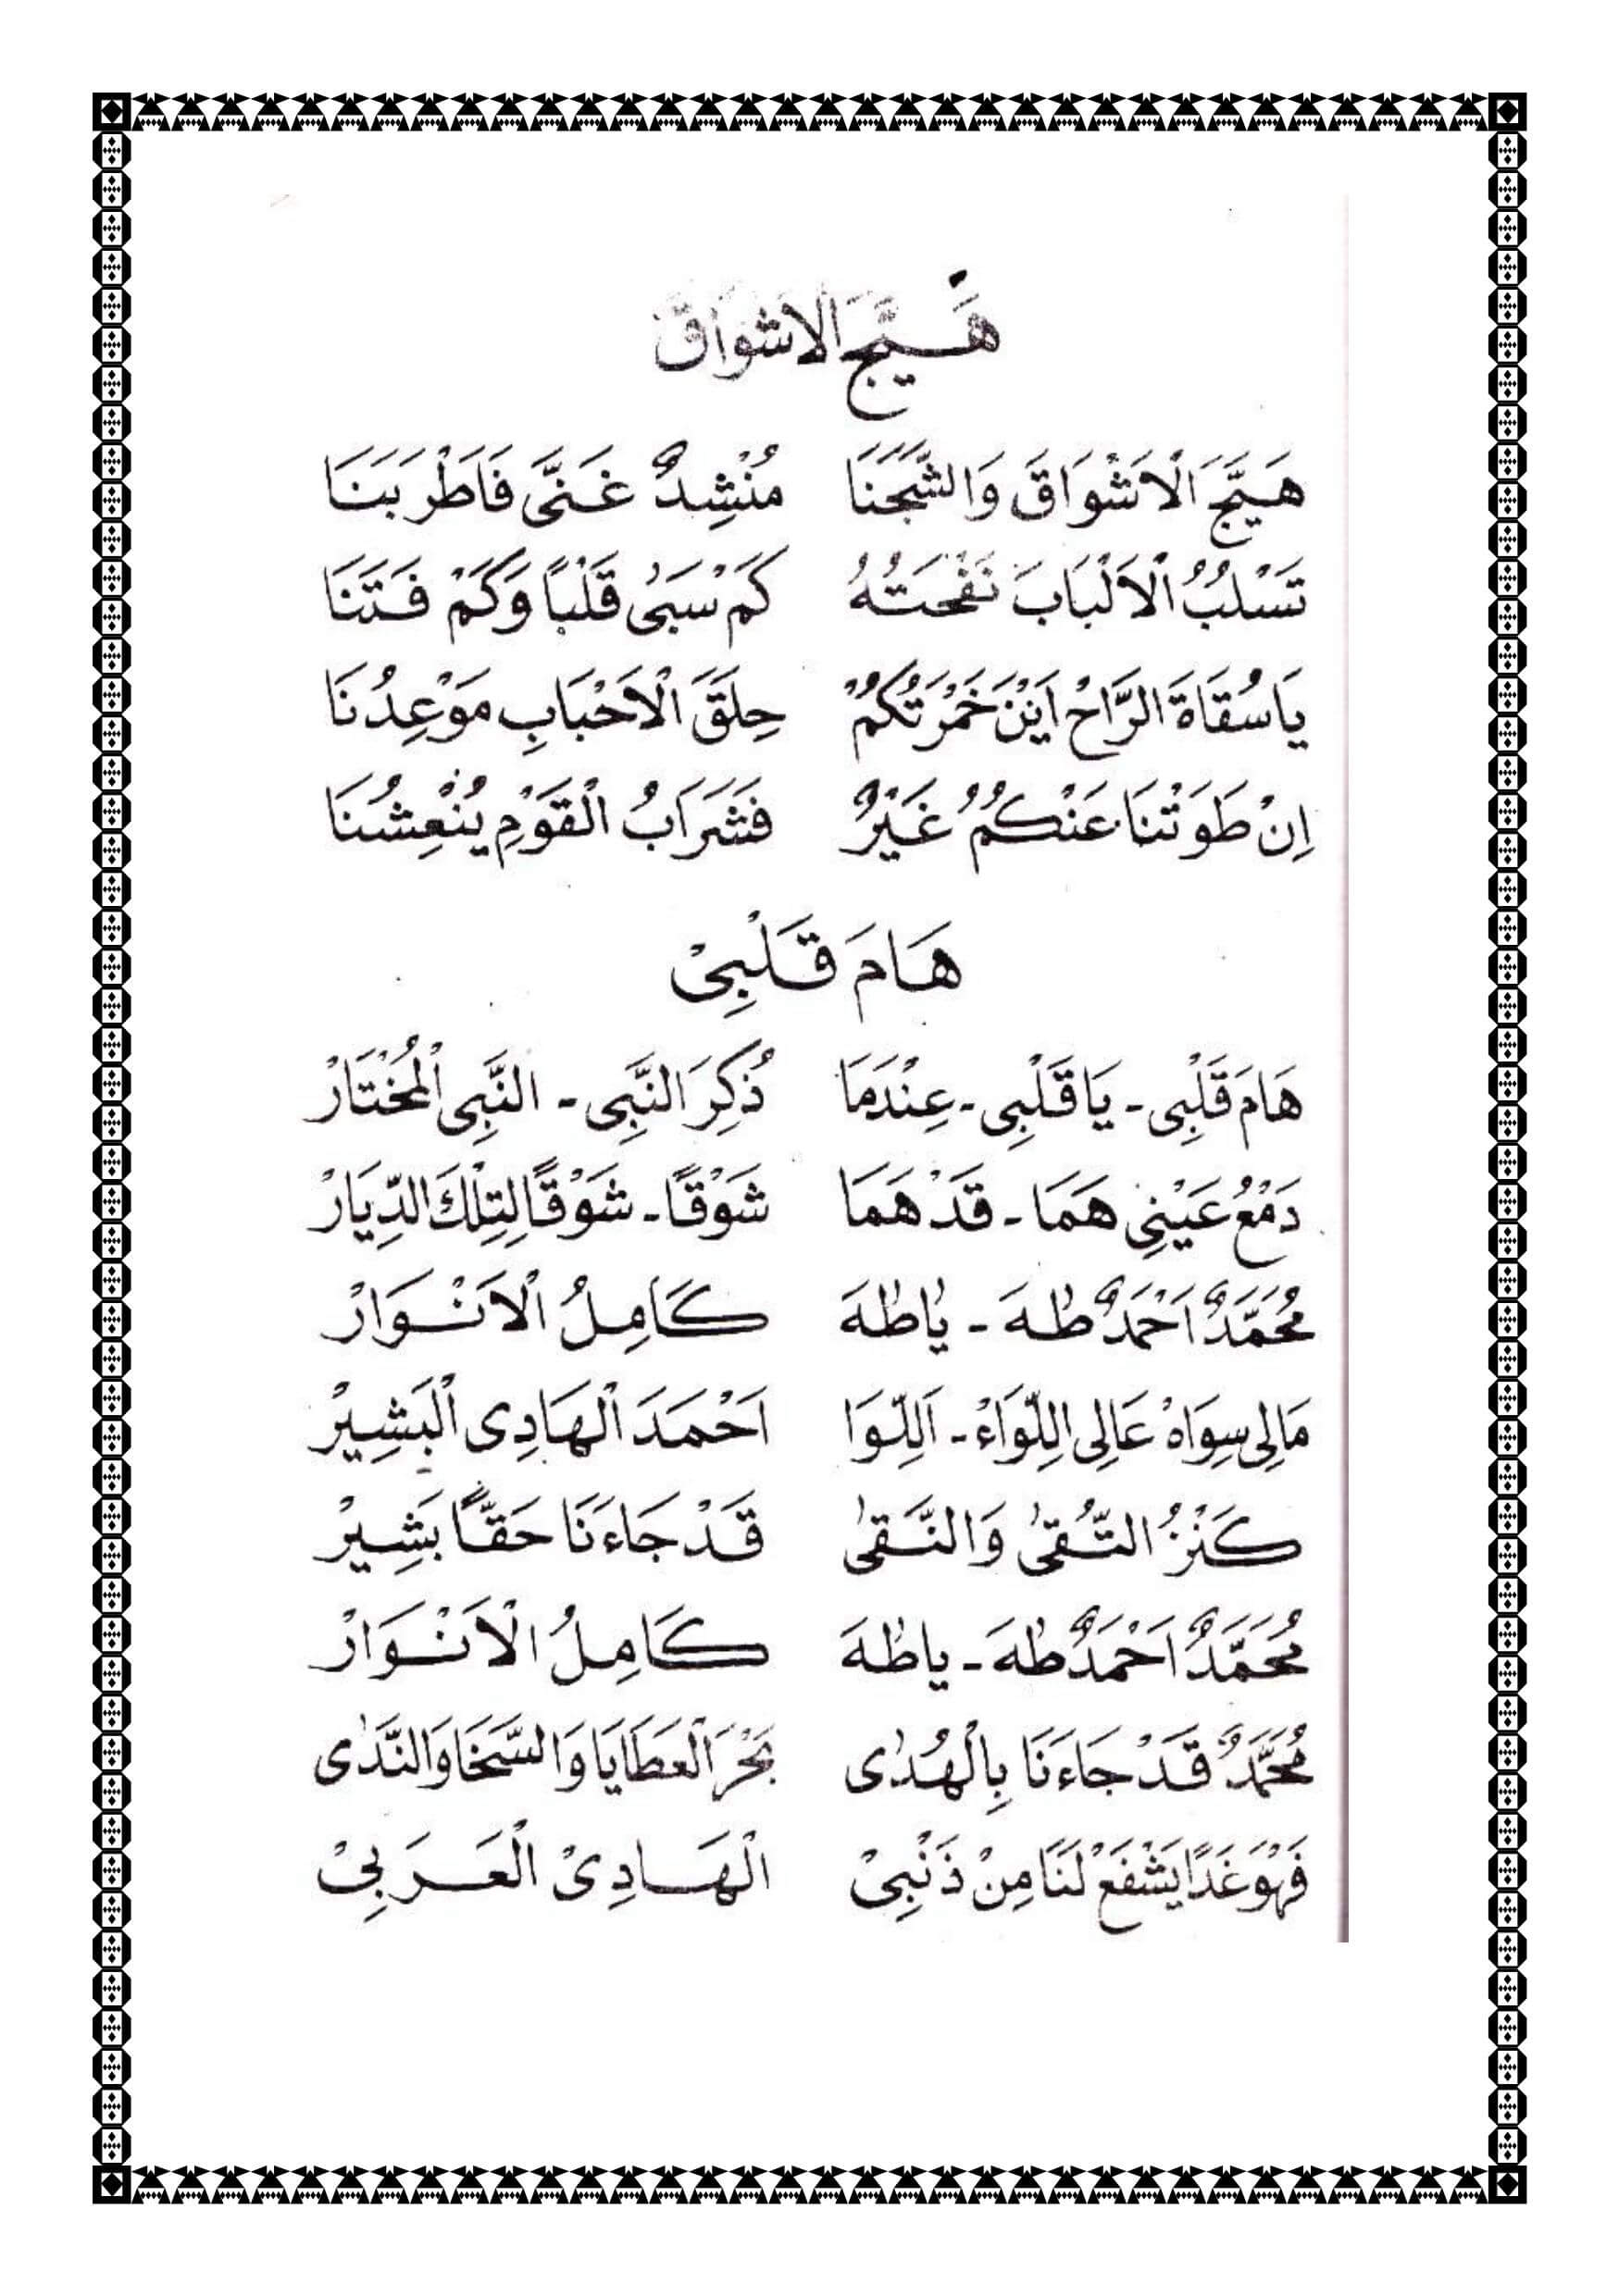 هَيَّجَ الْاَشْوَاقَ
هَيَّجَ الْاَشْوَاقَ وَالشَّجَنَا مُنْشِدٌ غَنَّى فَاَطْرَبَنَا
تَسْلُبُ الْاَلْبَابَ نَفْحَتُهُ كَمْ سَبٰى قَلْبًا وَكَمْ فَتَنَا
يَاسُقَاةَ الرَّاحْ اَيْنَ خَمْرَتُكُمْ حِلَقَ الْاَحْبَابِ مَوْعِدُنَا
اِنْ طَوَتْنَا عَنْكُمُ غَيْرٌ فَشَرَابُ الْقَوْمِ يُنْعِشُنَا
هَامَ قَلْبِىْ
هَامَ قَلْبِى - يَا قَلْبِى - عِنْدَمَا ذُكِرَ النَّبِى - النَّبِى الْمُخْتَارْ
دَمْعُ عَيْنِى هَمَا - قَدْ هَمَا شَوْقًا - شَوْقًا لِتِلْكَ الدِّيَارْ
مُحَمَّدٌ اَحْمَدٌ طٰهَ - يَاطٰهَ كَامِلُ الْاَنْوَارْ
مَالِى سِوَاهْ عَالِى اللِّوَاءْ - اَللِّوَا اَحْمَدَ الْهَادِى الْبَشِيرْ
كَنْزُ التُّقٰى وَالنَّقٰى قَدْ جَاءَنَا حَقًّا بَشِيرْ
مُحَمَّدٌ اَحْمَدٌ طٰهَ - ياطٰهَ كَامِلُ الْاَنْوَارْ
مُحَمَّدٌ قَدْ جَاءَنَا بِالْهُدٰى بَحْرَ الْعَطَايَا وَالسَّخَا وَالنَّدٰى
فَهْوَ غَدًا يَشْفَعْ لَنَا مِنْ ذَنْبِىْ الْهَادِىْ الْعَرَبِىْ